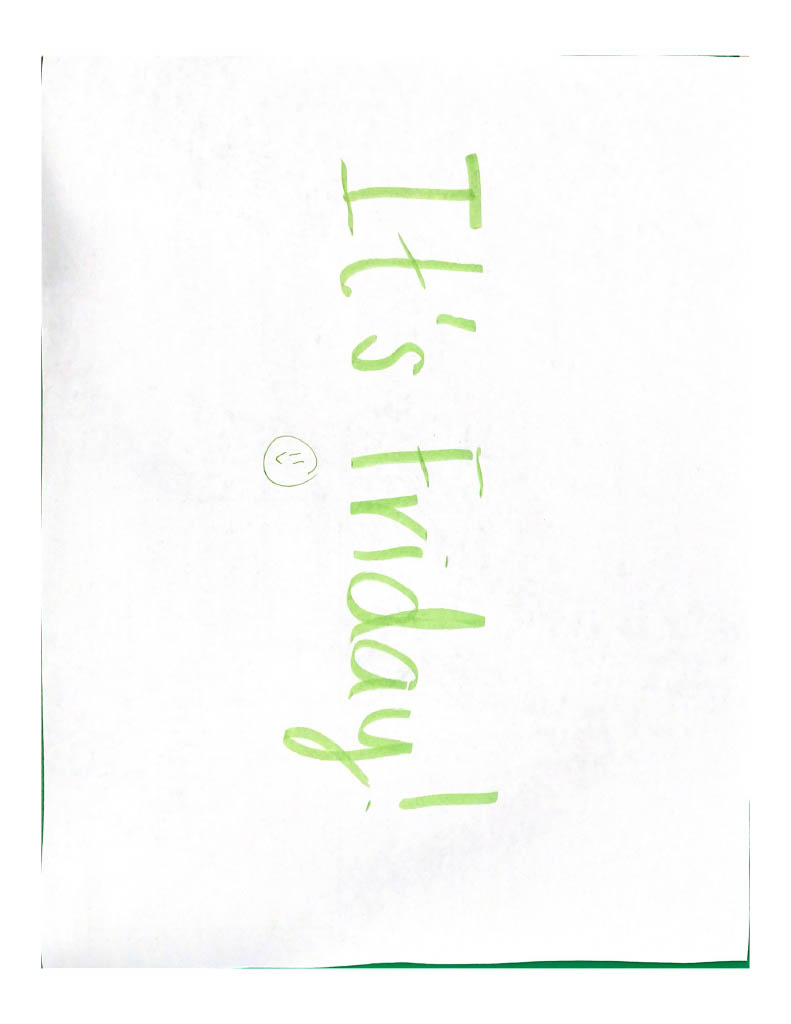 It's Friday!